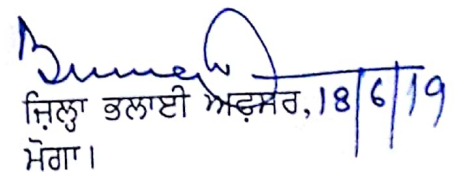 ਜ਼ਿਲ੍ਹਾ ਭਲਾਈ ਅਫ਼ਸਰ, 18/6/19
ਮੋਗਾ।